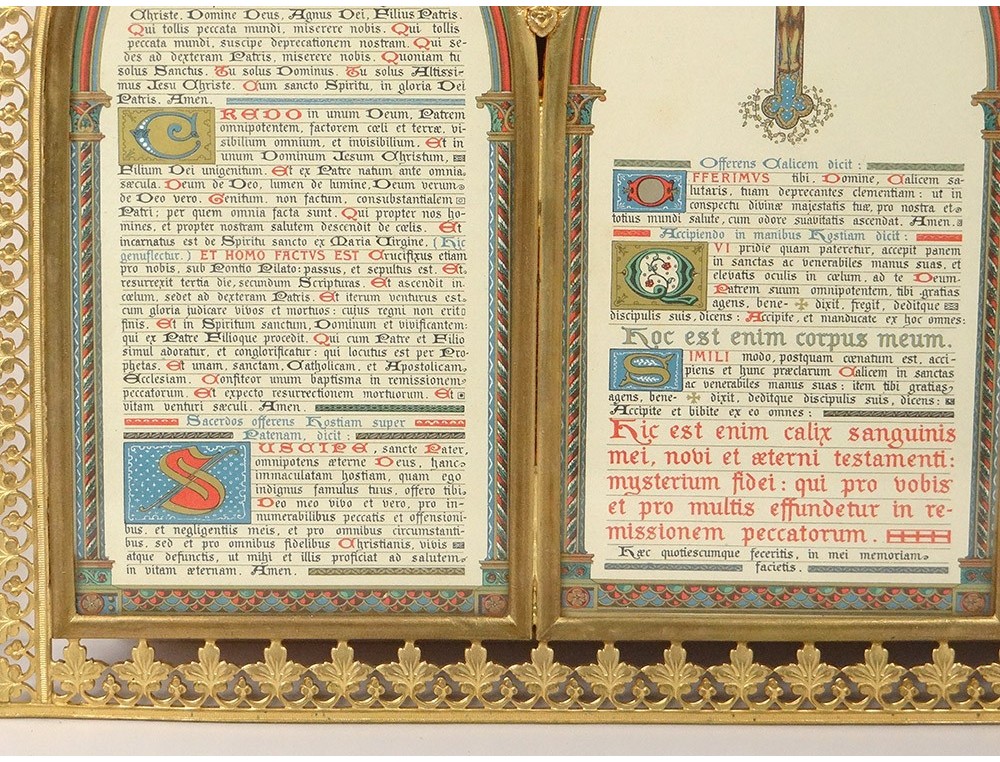 Christe. Domine Deus, Agnus Dei, Filius Patris.
Qui tollis peccata mundi, miserere nobis. Qui tollis
peccata mundi, suscipe deprecationem nostram. Qui se-
des ad dexteram Patris, miserere nobis. Quoniam tu
solus Sanctus. Tu solus Dominus. Tu solus Altissi-
mus Jesu Christe. Cum sancto Spiritu, in gloria Dei
Patris. Amen.
CREDO in unum Deum, Patrem
omnipotentem, factorem cœli et terræ, vi-
sibilium omnium, et invisibilium. Et in
unum Dominum Jesum Christum,
Filium Dei unigenitum. Et ex Patre natum ante omnia
sæcula. Deum de Deo, lumen de lumine, Deum verum
de Deo vero. Genitum, non factum, consubstantialem
Patri; per quem omnia facta sunt. Qui propter nos ho-
mines, et propter nostram salutem descendit de cœlis. Et
incarnatus est de Spiritu sancto ex Maria Virgine. (Hic
genuflectur.) ET HOMO FACTVS EST Crucifixus etiam
pro nobis, sub Pontio Pilato: passus, et sepultus est. Et
resurrexit tertia die, secundum Scripturas. Et ascendit in
cœlum, sedet ad dexteram Patris. Et iterum venturus est
cum gloria judicare vivos et mortuos: cujus regni non erit
finis. Et in Spiritum sanctum, Dominum et vivificantem:
qui ex Patre Filioque procedit. Qui cum Patre et Filio
simul adoratur, et conglorificatur: qui locutus est per Pro-
phetas. Et unam, sanctam, Catholicam, et Apostolicam,
Ecclesiam. Confiteor unum baptisma in remissionem
peccatorum. Et expecto resurrectionem mortuorum. Et
vitam venturi sæculi. Amen.
Sacerdos offerens Hostiam super
Patenam, dicit:
SUSCIPE, sancte Pater,
omnipotens æterne Deus, hanc
immaculatam hostiam, quam ego
indignus famulus tuus, offero tibi,
Deo meo vivo et vero, pro in-
numerabilibus peccatis et offensioni-
bus, et negligentiis meis, et pro omnibus circumstanti-
bus, sed et pro omnibus fidelibus Christianis, vivis
atque defunctis, ut mihi et illis proficiat ad salutem
in vitam æternam. Amen.
Offerens Calicem dicit:
OFFERIMVS tibi, Domine, Calicem sa-
lutaris, tuam deprecantes clementiam: ut in
conspectu divinæ majestatis tuæ, pro nostra et
totius mundi salute, cum odore suavitatis ascendat. Amen.
Accipiendo in manibus Hostiam dicit:
QVI pridie quam pateretur, accepit panem
in sanctas ac venerabiles manus suas, et
elevatis oculis in cœlum, ad te Deum
Patrem suum omnipotentem, tibi gratias
agens, bene- ✠ dixit, fregit, deditque
discipulis suis, dicens: Accipite, et manducate ex hoc omnes:
Hoc est enim corpus meum.
SIMILI modo, postquam cœnatum est, acci-
piens et hunc præclarum Calicem in sanctas
ac venerabiles manus suas: item tibi gratias
agens, bene- ✠ dixit, deditque discipulis suis, dicens:
Accipite et bibite ex eo omnes:
Hic est enim calix sanguinis
mei, novi et æterni testamenti:
mysterium fidei: qui pro vobis
et pro multis effundetur in re-
missionem peccatorum.
Hæc quotiescumque feceritis, in mei memoriam
facietis.